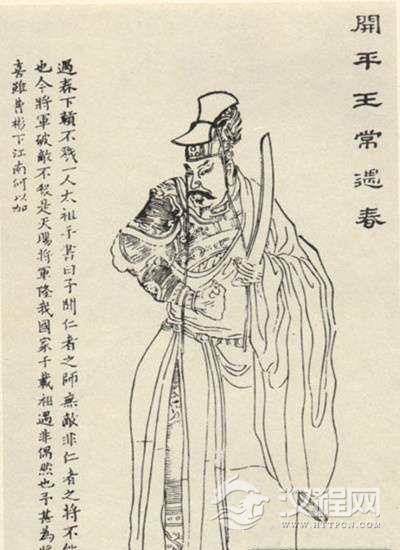 開平王常遇春
遇春下贛不殘一人太祖手書曰予聞仁者之師無敵非仁者之將不能
也今將軍破敵不殺是天賜將軍隆我國家千載相遇非偶然也予甚為
喜雖曹彬下江南何以加
汉程网
WWW.HTTPCN.COM